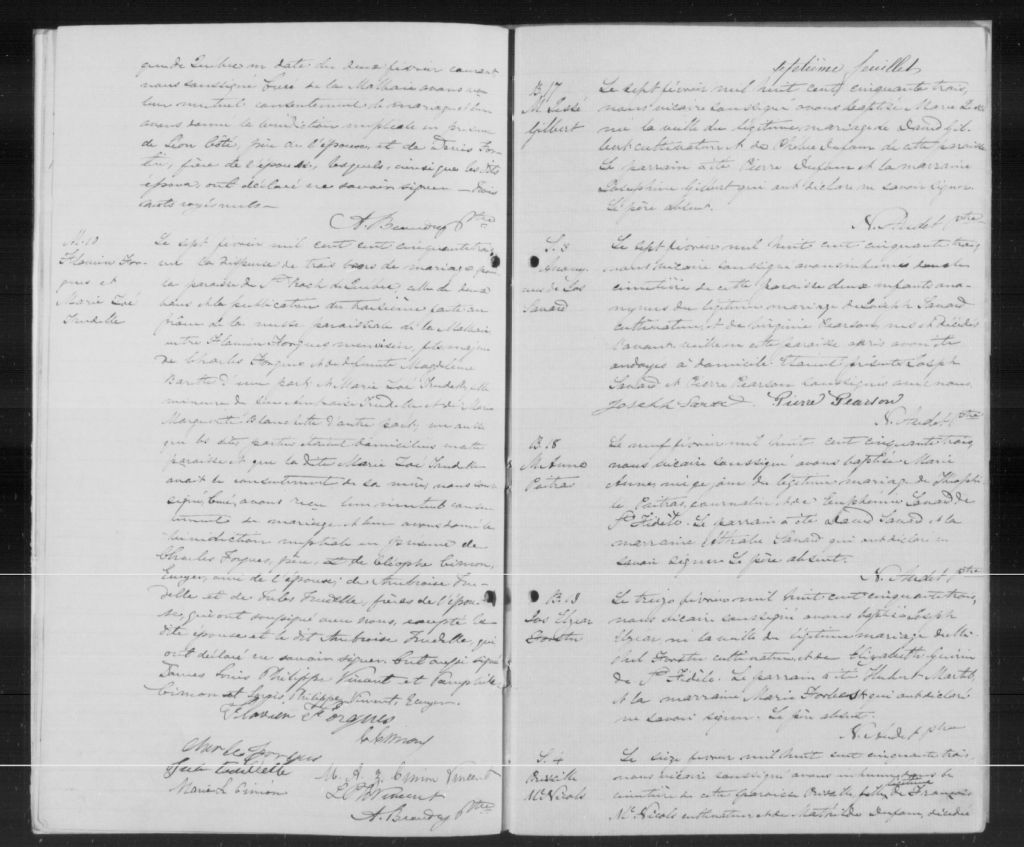 en date du deux février courant
nous soussigné Curé de la Malbaie avons
leur mutuel consentement de mariage et leur
avons donné la bénédiction nuptiale en présence
de Léon Côté, père de l'épouse, et de Denis
père de l'époux, lesquels, ainsi que les dits
époux, ont déclaré ne savoir signer
mots rayés nuls
A. Beaudry Ptre
M. 10
Flavien For-
gues et
Marie Zoé
Trudelle
Le sept février mil cent cent cinquante trois,
vu la dispense de trois bans de mariage
la paroisse de St Roch de Québec, celle de deux
bans et la publication du troisième faite au
prône de la messe paroissiale de la Malbaie
entre Flavien Forgues menuisier, fils majeur
de Charles Forgues et de défunte Magdeleine
Barthe d'une part et Marie Zoé Trudelle
mineure de feu Ambroise Trudelle et de Marie
Marguerite d'autre part, vu aussi
que les dites parties étaient domiciliées en cette
paroisse et que la dite Marie Zoé Trudelle
avait le consentement de sa mère, nous sous-
signé, Curé, avons reçu leur mutuel consen-
tement de mariage et leur avons donné la
bénédiction nuptiale en présence de
Charles Forgues, père, et de Cléophe Cimon,
Ecuyer, ami de l'épouse; de Ambroise Tru-
delle et de Jules Trudelle, frères de l'épou-
se, qui ont soussigné avec nous, excepté la
dite épouse et le dit Ambroise Trudelle, qui
ont déclaré ne savoir signer. Ont aussi signé
Dames Louis Philippe Vincent et Pamphile
Cimon et Louis Philippe Vincent, Ecuyer.
Flavien Forgues
C. Cimon
Charles Forgues
Marie L Cimon
M. A. Z. Cimon Vincent
L P Vincent
A. Beaudry Ptre
Septième feuillet
B. 17
M.
Gilbert
Le sept février mil huit cent cinquante trois,
nous vicaire soussigné avons baptisé Marie
née la veille du légitime mariage de David Gil-
bert cultivateur et de Dufour de cette paroisse
Le parrain a été Pierre Dufour et la marraine
Josephine Gilbert qui ont déclaré ne savoir signer.
Le père absent.
N. Audet Ptre
S. 3
Anony-
mes de Jos
Savard
Le sept février mil huit cent cinquante trois,
nous vicaire soussigné avons inhumé dans le
cimetière de cette paroisse deux enfants ano-
nymes du légitime mariage de Joseph Savard
cultivateur et de Virginie Pearson, nés et décédés
l'avant veille en cette paroisse après avoir été
ondoyés à domicile. Etaient présents Joseph
Savard et Pierre Pearson soussignés avec nous.
Joseph Savard Pierre Pearson
N. Audet Ptre
B. 18
M. Anne
Poitras
Le neuf février mil huit cent cinquante trois,
nous vicaire soussigné avons baptisé Marie
Anne, née ce jour du légitime mariage de Théophi-
le Poitras, journalier et de Euphémie Savard de
St Fidèle. Le parrain a été David Savard et la
marraine Nathalie Savard qui ont déclaré ne
savoir signer. Le père absent.
N. Audet Ptre
B. 19
Jos Elzear
Le treize février mil huit cent cinquante trois,
nous vicaire soussigné avons baptisé Joseph
Elzear né la veille du légitime mariage de Mi-
chel cultivateur et de Elizabeth Guérin
de St Fidèle. Le parrain a été Hubert
et la marraine Marie qui ont déclaré
ne savoir signer. Le père absent.
N. Audet ptre
S. 4
McNicols
Le seize février mil huit cent cinquante trois,
nous vicaire soussigné avons inhumé dans le
cimetière de cette paroisse fille de François
McNicols cultivateur et de Mathilde Dufour, décédée